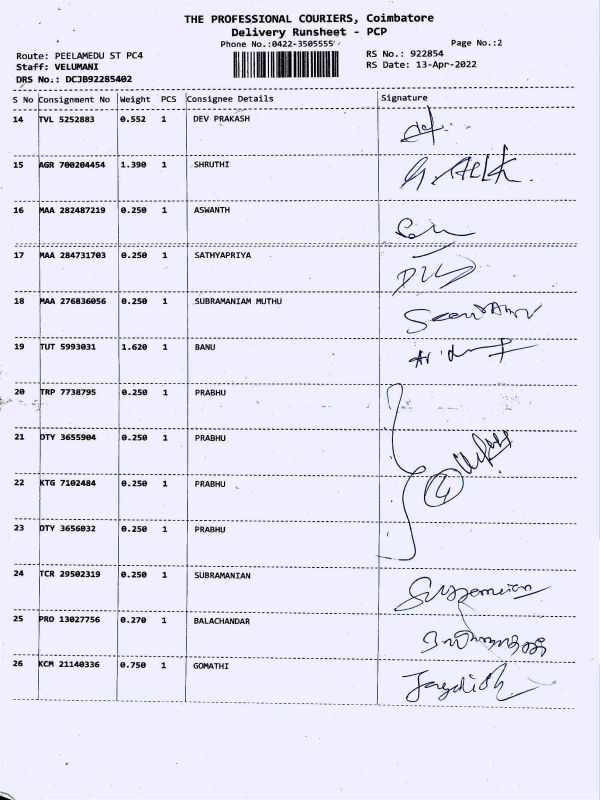 THE PROFESSIONAL COURIERS, Coimbatore
Delivery Runsheet - PCP
Phone No.:0422-3505555
Page No.:2
Route: PEELAMEDU ST PC4
RS No.: 922854
Staff: VELUMANI
RS Date: 13-Apr-2022
DRS No.: DCJB92285402
S No Consignment No Weight PCS Consignee Details Signature
14 TVL 5252883 0.552 1 DEV PRAKASH
15 AGR 700204454 1.390 1 SHRUTHI
16 MAA 282487219 0.250 1 ASWANTH
17 MAA 284731703 0.250 1 SATHYAPRIYA
18 MAA 276836056 0.250 1 SUBRAMANIAM MUTHU
19 TUT 5993031 1.620 1 BANU
20 TRP 7738795 0.250 1 PRABHU
21 OTY 3655904 0.250 1 PRABHU
22 KTG 7102484 0.250 1 PRABHU
4
23 OTY 3656032 0.250 1 PRABHU
24 TCR 29502319 0.250 1 SUBRAMANIAN
25 PRO 13027756 0.270 1 BALACHANDAR
26 KCM 21140336 0.750 1 GOMATHI